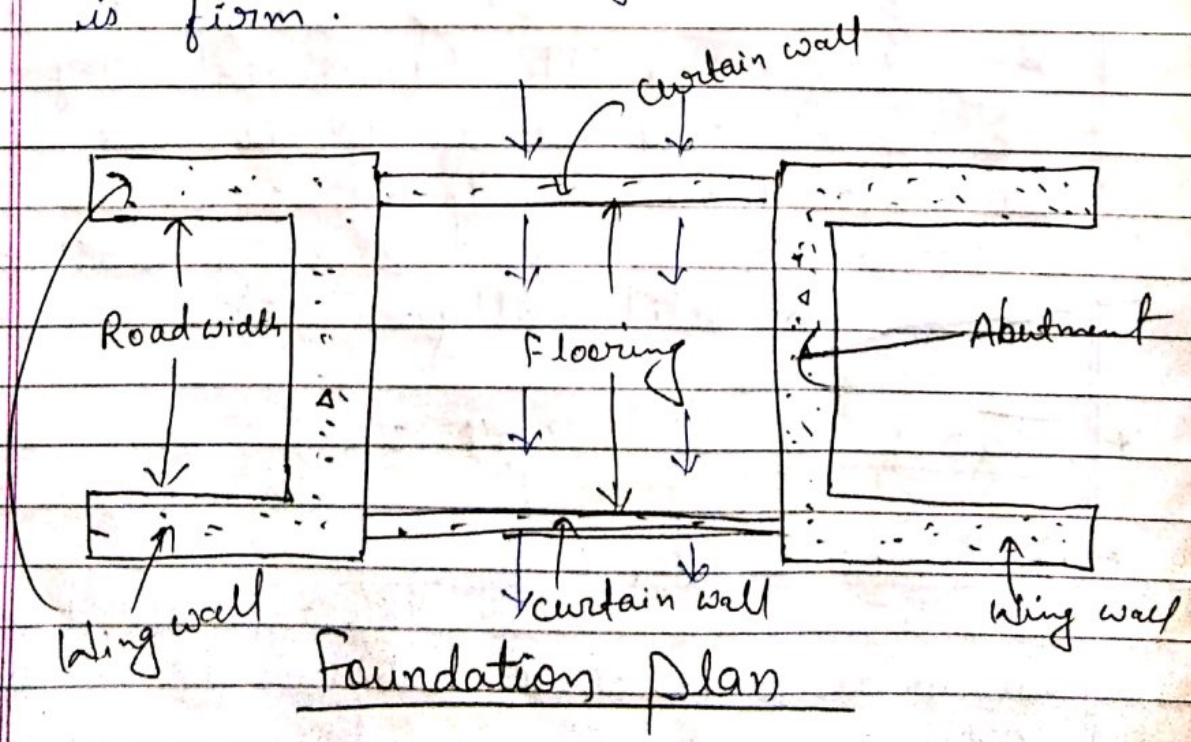 is firm.
Curtain wall
Road width
Flooring
Abutment
Wing wall
curtain wall
Wing wall
Foundation plan